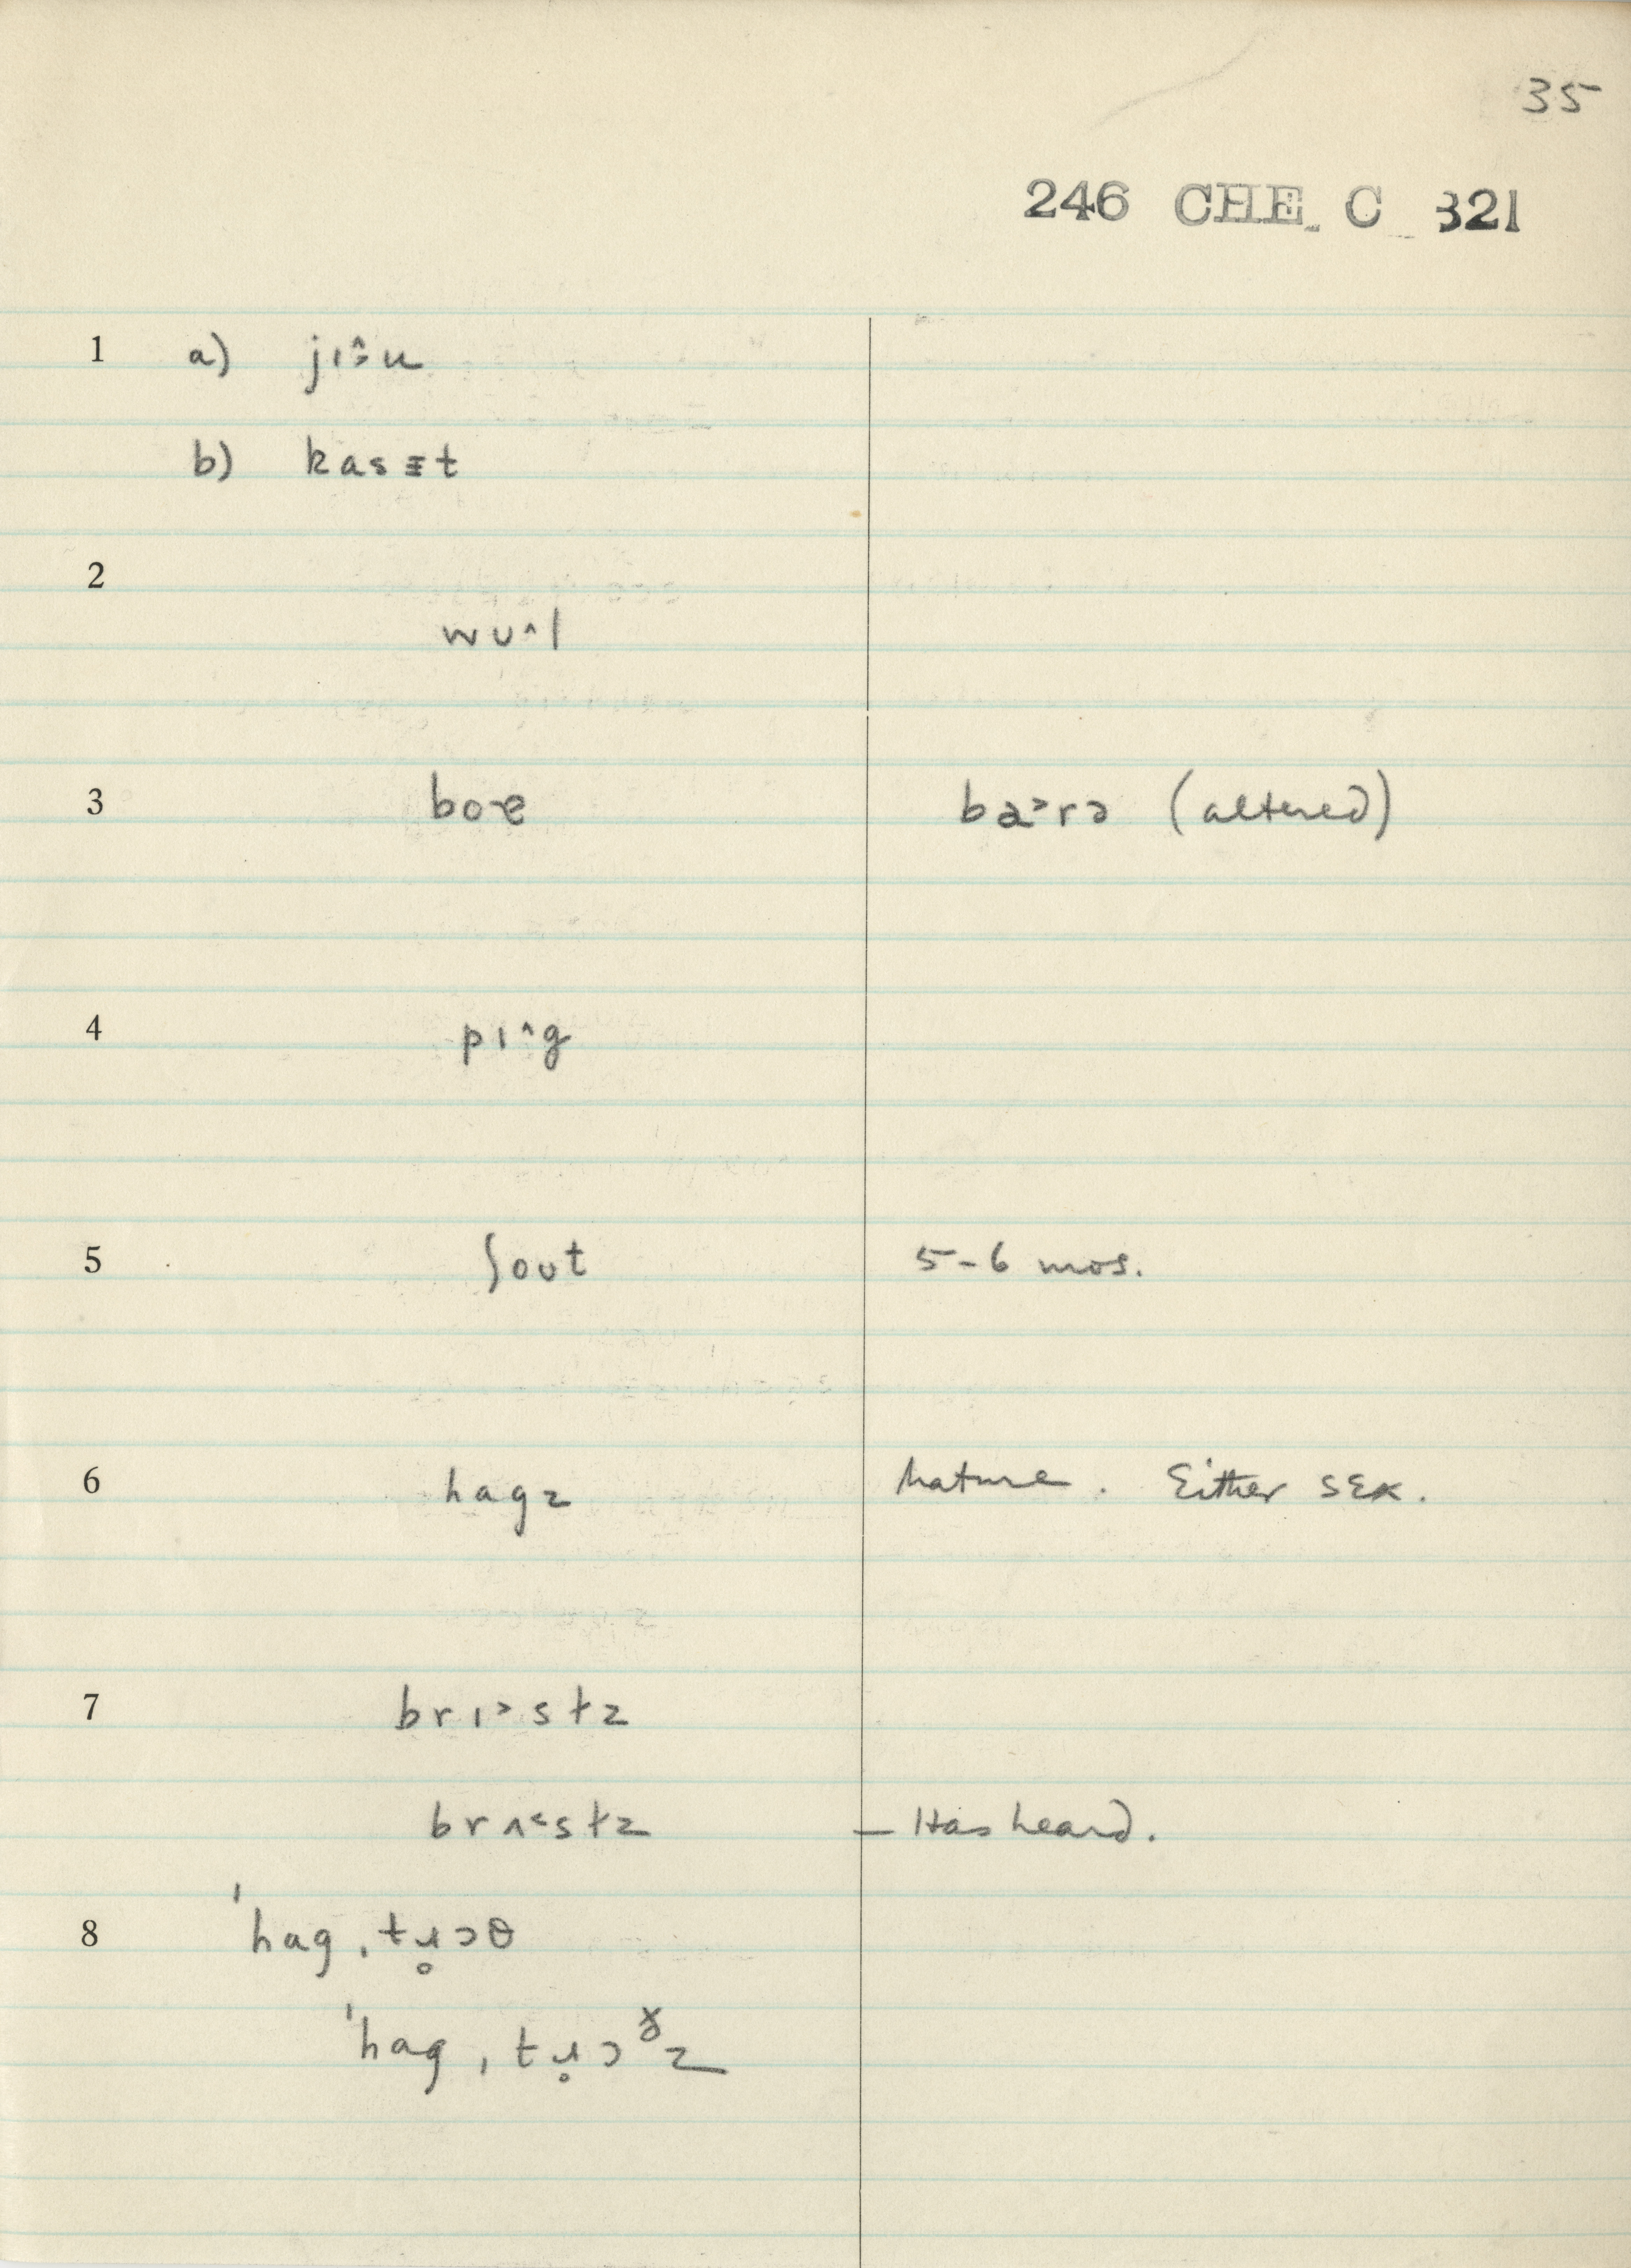 35
246 CHE. C 321
1 a) jɪ˄ːu
b) kasɪt
2
wʊ˄l
3 boɚ baʾrə (altered)
4 pɪ˄g
5 ʃoʊt 5-6 mos.
6 hagz Mature. Either sex.
7 brɪ˃stz
brʌ˂stz – Has heard.
8 ˈhag ˌtɹ̥ɔθ
ˈhag ˌtɹ̥ɔᵟz